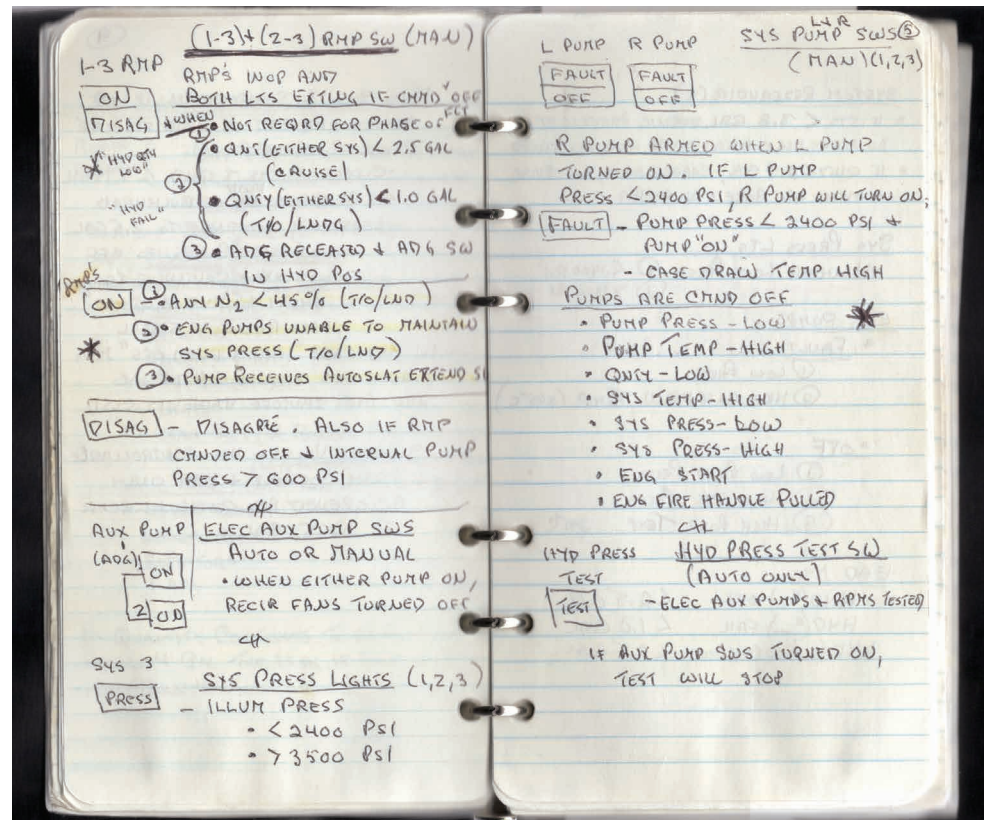 (1-3)+(2-3) RMP SW (MAN)
1-3 RMP
RMP'S INOP AND
BOTH LTS EXTING IF CMMD "OFF"
ON
DISAG
WHEN
① • NOT REQRD FOR PHASE OF FLT
"HYD QTY LOW"
② • QNT (EITHER SYS) < 2.5 GAL
(CRUISE)
• QNTY (EITHER SYS) < 1.0 GAL
"HYD FAIL"
(T/O/LNDG)
③ • ADG RELEASED + ADG SW
IN HYD POS
RMP'S
ON - ① • ANY N2 < 45% (T/O/LND)
② • ENG PUMPS UNABLE TO MAINTAIN
SYS PRESS (T/O/LND)
③ • PUMP RECEIVES AUTOSLAT EXTEND
DISAG - DISAGREE. ALSO IF RMP
CMNDED OFF + INTERNAL PUMP
PRESS > 600 PSI
AUX PUMP
(ADG) 1 ON
2 ON
ELEC AUX PUMP SWS
AUTO OR MANUAL
• WHEN EITHER PUMP ON,
RECIR FANS TURNED OFF
SYS 3
PRESS
SYS PRESS LIGHTS (1,2,3)
- ILLUM PRESS
• < 2400 PSI
• > 3500 PSI
L+R
SYS PUMP SWS ⑤
(MAN)(1,2,3)
L PUMP R PUMP
FAULT FAULT
OFF OFF
R PUMP ARMED WHEN L PUMP
TURNED ON. IF L PUMP
PRESS < 2400 PSI, R PUMP WILL TURN ON.
FAULT - PUMP PRESS < 2400 PSI +
PUMP "ON"
- CASE DRAW TEMP HIGH
PUMPS ARE CMND OFF
• PUMP PRESS - LOW
• PUMP TEMP - HIGH
• QNTY - LOW
• SYS TEMP - HIGH
• SYS PRESS - LOW
• SYS PRESS - HIGH
• ENG START
• ENG FIRE HANDLE PULLED
HYD PRESS
TEST
TEST
HYD PRESS TEST SW
(AUTO ONLY)
- ELEC AUX PUMPS + RPMS TESTED
IF AUX PUMP SWS TURNED ON,
TEST WILL STOP